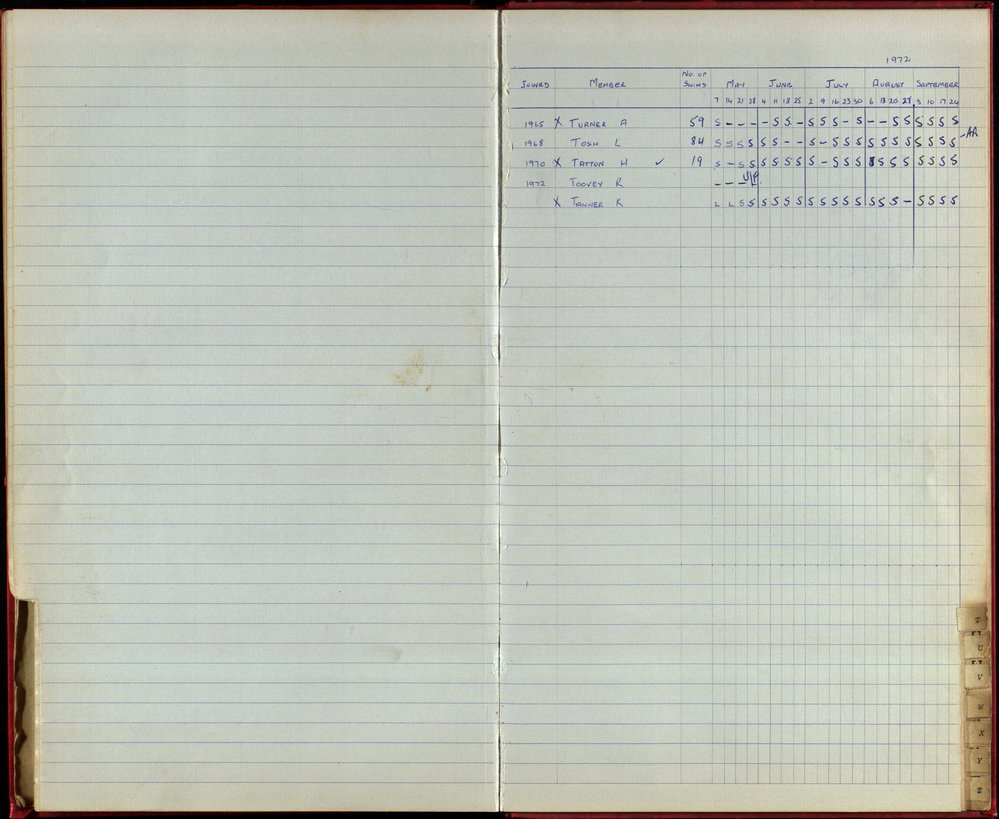 1972
JOINED MEMBER NO. OF SWIMS MAY JUNE JULY AUGUST SEPTEMBER
7 14 21 28 4 11 18 25 2 9 16 23 30 6 13 20 27 3 10 17 24
1965 X TURNER A 59 S - - - - S S - S S S - S - - S S S S S S
1968 TOSH L 84 S S S S S S - - S - S S S S S S S S S S S AR
1970 X TATTON H ✓ 19 S - S S S S S S S - S S S S S S S S S S
1972 TOOVEY R - - - U/P.
X TANNER K L L S S S S S S S S S S S S S S - S S S S
T
U
V
W
X
Y
Z